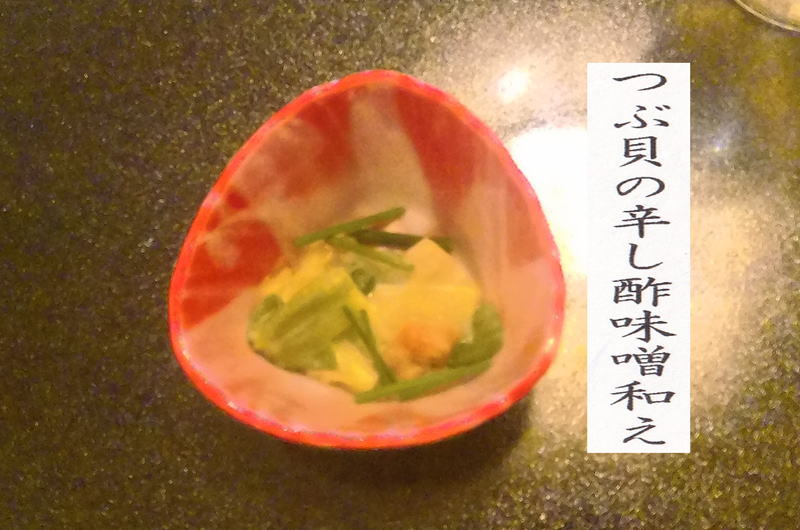 つぶ貝の辛し酢味噌和え